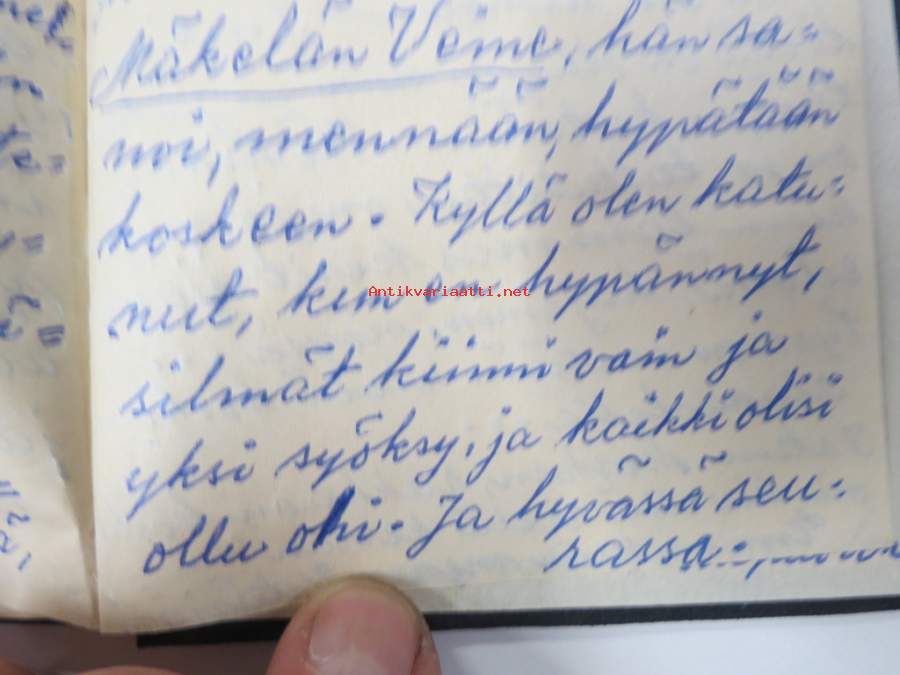 Mäkelän Veine, hän sa=
noi, mennään, hypätään
koskeen. Kyllä olen katu=
nut, kun en hypännyt,
Antikvariaatti.net
silmät kiinni vain ja
yksi syöksy, ja kaikki olisi
ollu ohi. Ja hyvässä seu=
rassa.